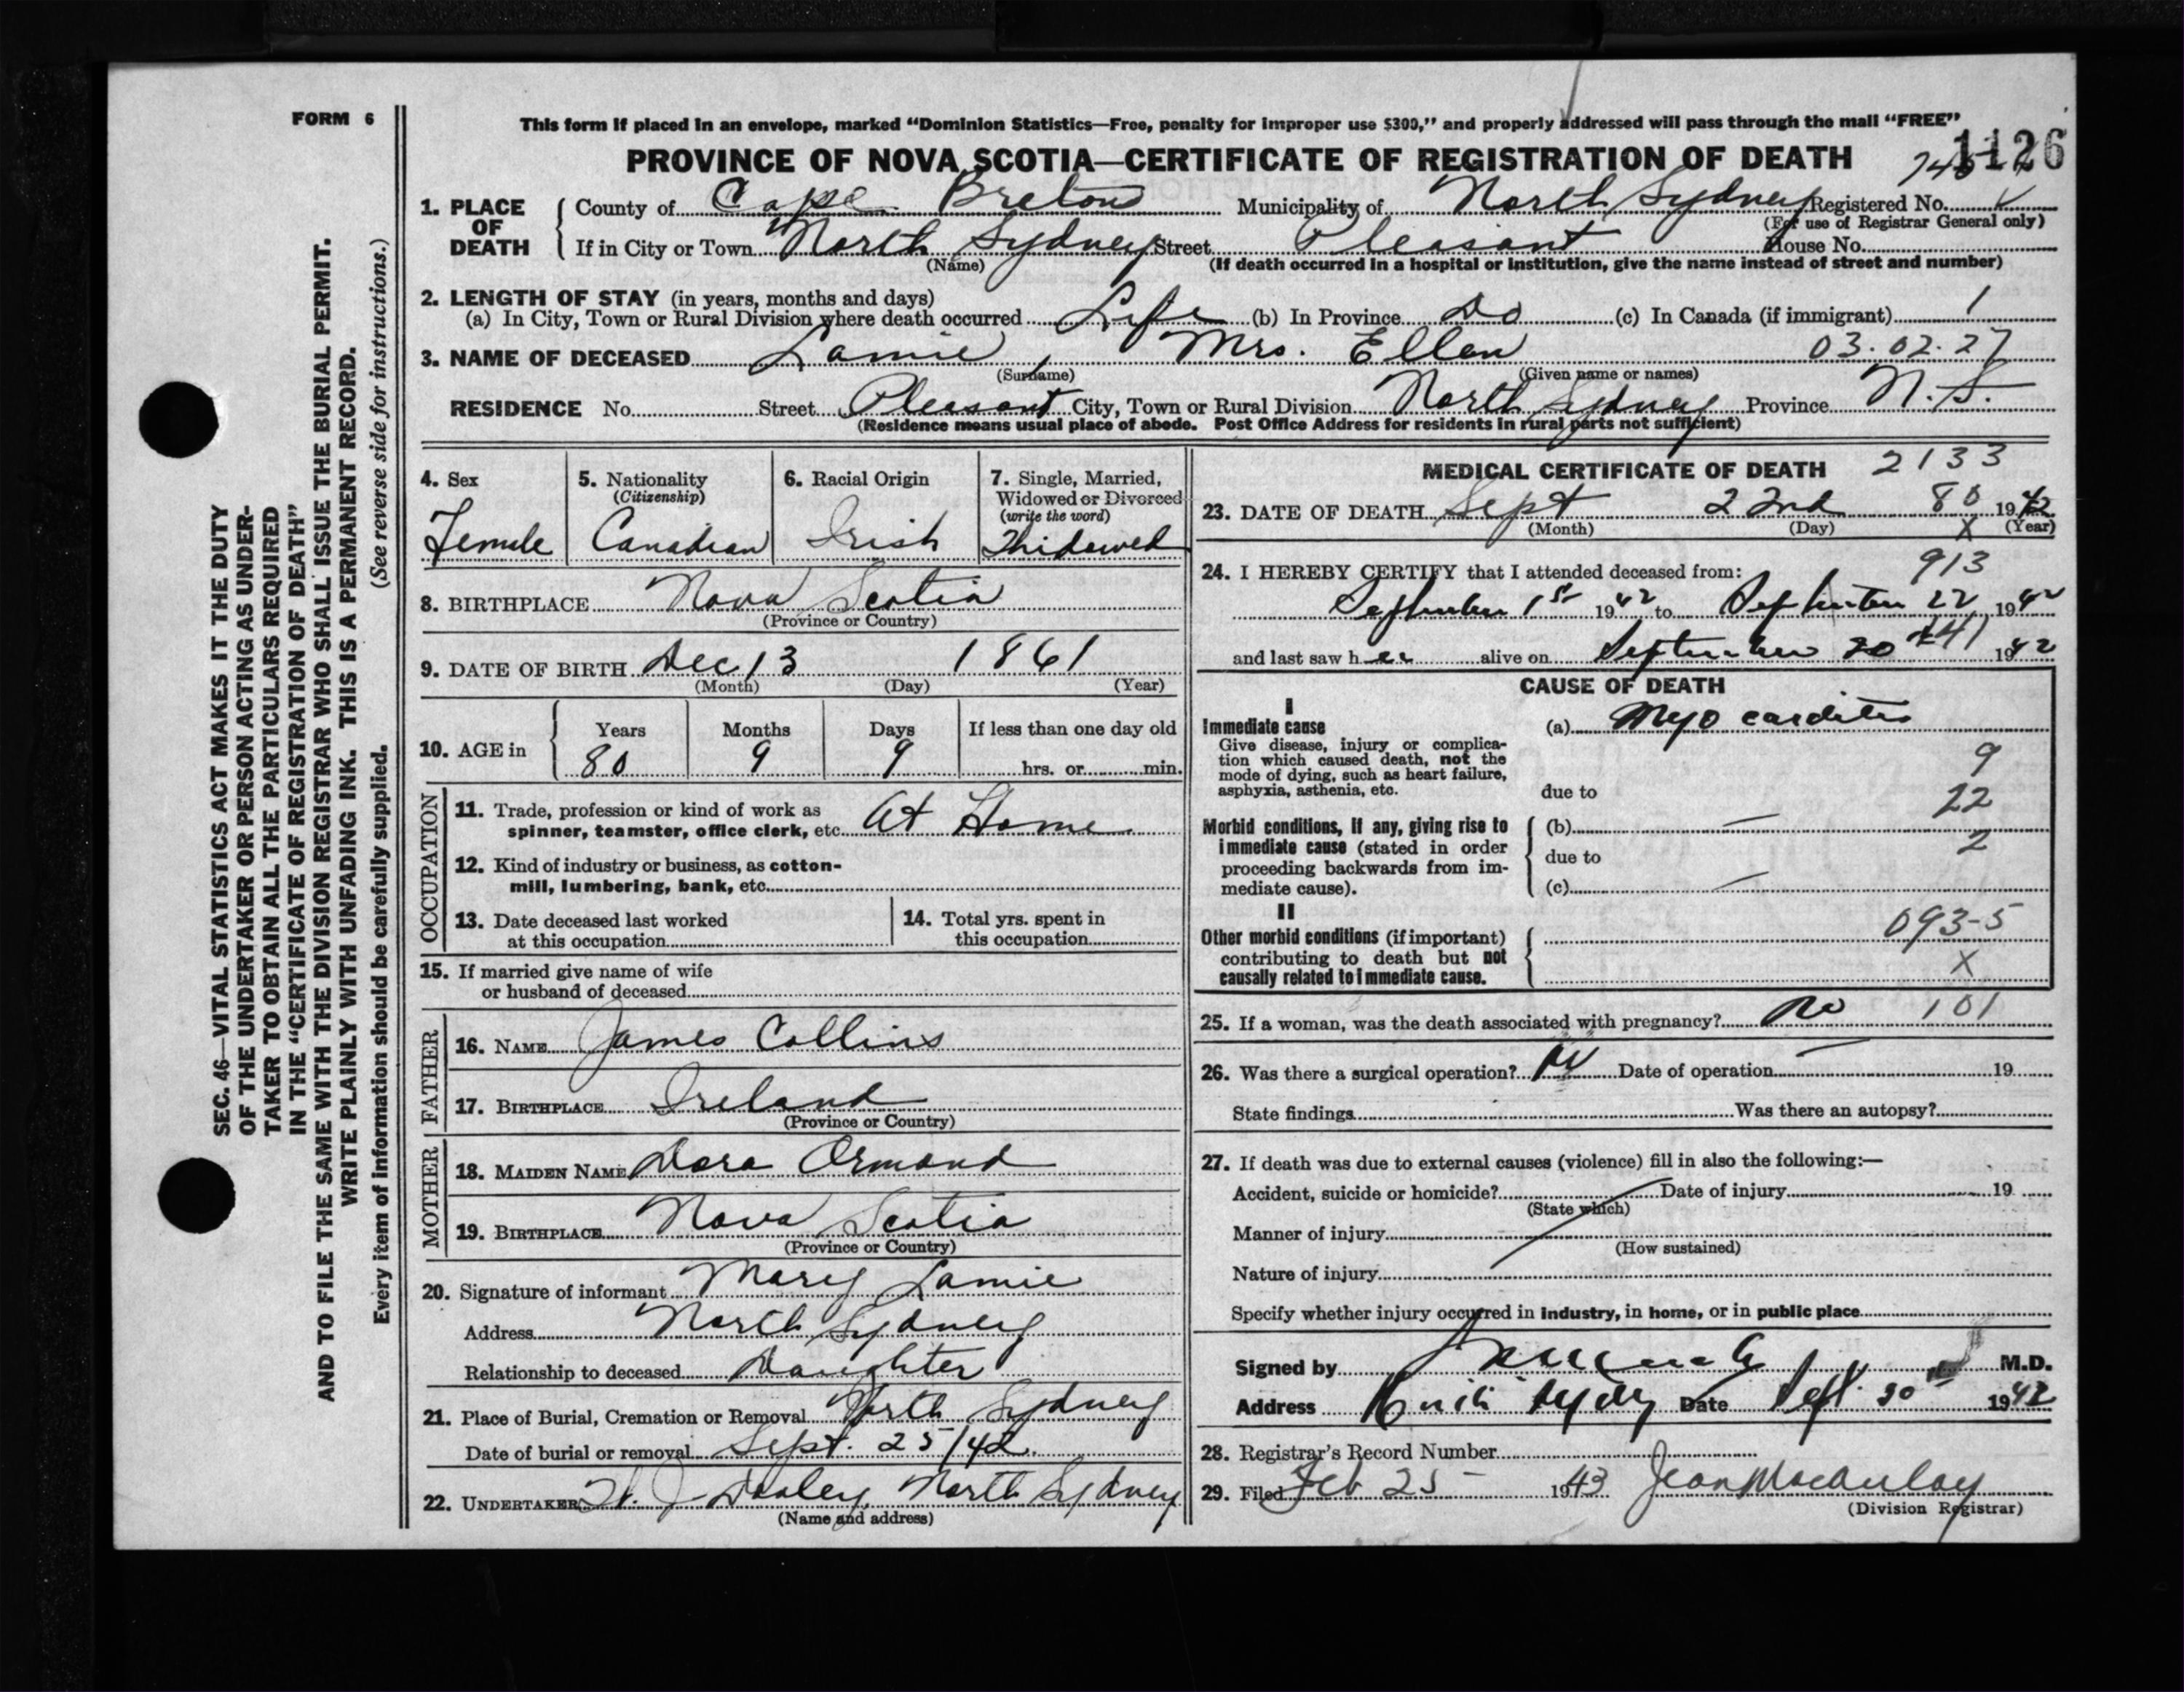 FORM 6
This form if placed in an envelope, marked “Dominion Statistics—Free, penalty for improper use $300,” and properly addressed will pass through the mail “FREE”
PROVINCE OF NOVA SCOTIA—CERTIFICATE OF REGISTRATION OF DEATH
1126
1. PLACE OF DEATH
County of Cape Breton Municipality of North Sydney Registered No.
(For use of Registrar General only)
If in City or Town North Sydney Street Pleasant House No.
(Name) (If death occurred in a hospital or institution, give the name instead of street and number)
2. LENGTH OF STAY (in years, months and days)
(a) In City, Town or Rural Division where death occurred Life (b) In Province Do (c) In Canada (if immigrant) 1
3. NAME OF DECEASED Lamie, Mrs. Ellen 03.02.27
(Surname) (Given name or names)
RESIDENCE No. Street Pleasant City, Town or Rural Division North Sydney Province N.S.
(Residence means usual place of abode. Post Office Address for residents in rural parts not sufficient)
4. Sex
Female
5. Nationality
(Citizenship)
Canadian
6. Racial Origin
Irish
7. Single, Married,
Widowed or Divorced
(write the word)
Widowed
8. BIRTHPLACE Nova Scotia
(Province or Country)
9. DATE OF BIRTH Dec 13 1861
(Month) (Day) (Year)
10. AGE in
Years Months Days If less than one day old
80 9 9 hrs. or min.
OCCUPATION
11. Trade, profession or kind of work as
spinner, teamster, office clerk, etc. At Home
12. Kind of industry or business, as cotton-
mill, lumbering, bank, etc.
13. Date deceased last worked
at this occupation
14. Total yrs. spent in
this occupation
15. If married give name of wife
or husband of deceased
FATHER
16. NAME James Collins
17. BIRTHPLACE Ireland
(Province or Country)
MOTHER
18. MAIDEN NAME Dora Ormond
19. BIRTHPLACE Nova Scotia
(Province or Country)
20. Signature of informant Mary Lamie
Address North Sydney
Relationship to deceased Daughter
21. Place of Burial, Cremation or Removal North Sydney
Date of burial or removal Sept. 25/42.
22. UNDERTAKER J Dooley, North Sydney
(Name and address)
MEDICAL CERTIFICATE OF DEATH 2133
23. DATE OF DEATH Sept 22nd 80 1942
(Month) (Day) X (Year)
24. I HEREBY CERTIFY that I attended deceased from: 913
September 1st 1942 to September 22 1942
and last saw her alive on September 20 1942
CAUSE OF DEATH
I
Immediate cause
Give disease, injury or complica-
tion which caused death, not the
mode of dying, such as heart failure,
asphyxia, asthenia, etc.
(a) Myocarditis
9
due to
22
Morbid conditions, if any, giving rise to
immediate cause (stated in order
proceeding backwards from im-
mediate cause).
(b) —
2
due to
(c) —
II
Other morbid conditions (if important)
contributing to death but not
causally related to immediate cause.
093-5
X
25. If a woman, was the death associated with pregnancy? no 101
26. Was there a surgical operation? no Date of operation — 19
State findings Was there an autopsy?
27. If death was due to external causes (violence) fill in also the following:—
Accident, suicide or homicide? Date of injury 19
(State which)
Manner of injury
(How sustained)
Nature of injury
Specify whether injury occurred in industry, in home, or in public place
Signed by M.D.
Address North Sydney Date Sept. 30 1942
28. Registrar's Record Number
29. Filed Feb 25 1943 Jean MacAulay
(Division Registrar)
SEC. 46—VITAL STATISTICS ACT MAKES IT THE DUTY
OF THE UNDERTAKER OR PERSON ACTING AS UNDER-
TAKER TO OBTAIN ALL THE PARTICULARS REQUIRED
IN THE “CERTIFICATE OF REGISTRATION OF DEATH”
AND TO FILE THE SAME WITH THE DIVISION REGISTRAR WHO SHALL ISSUE THE BURIAL PERMIT.
WRITE PLAINLY WITH UNFADING INK. THIS IS A PERMANENT RECORD.
Every item of information should be carefully supplied. (See reverse side for instructions.)